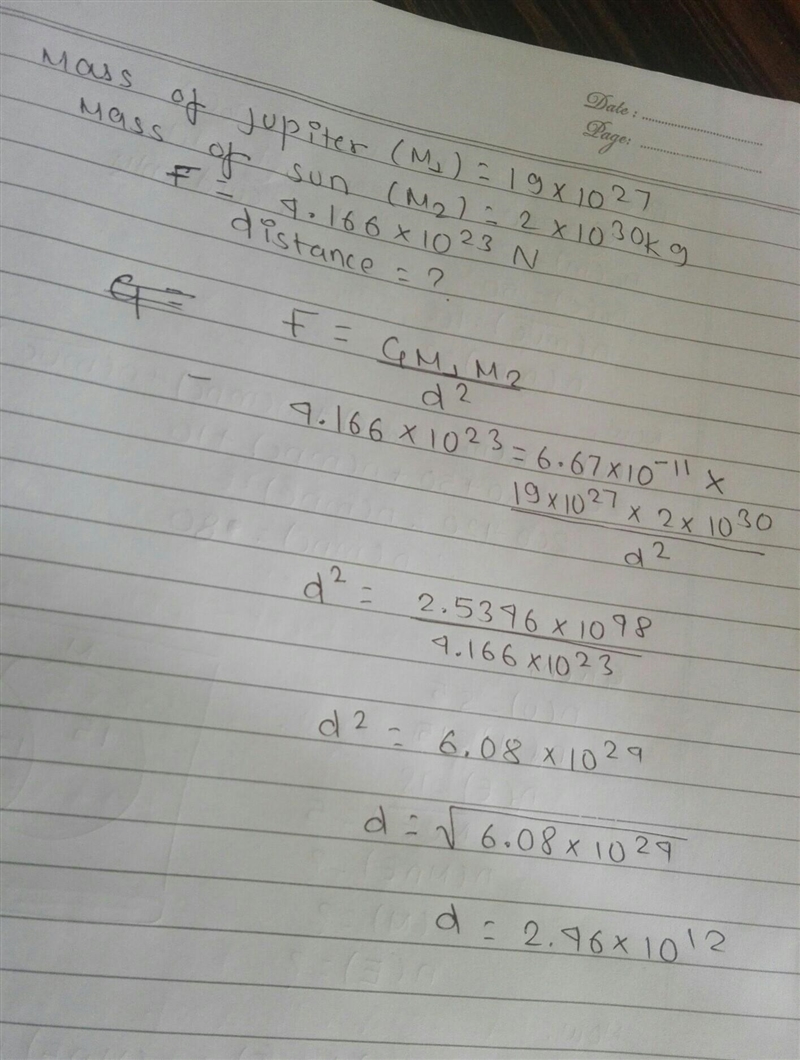 Date: ..............
Page: ..............
Mass of Jupiter (M₁) = 19 × 10²⁷
Mass of sun (M₂) = 2 × 10³⁰ kg
F = 4.166 × 10²³ N
distance = ?
F = GM₁M₂ / d²
4.166 × 10²³ = 6.67 × 10⁻¹¹ ×
19 × 10²⁷ × 2 × 10³⁰ / d²
d² = 2.5346 × 10⁴⁸ / 4.166 × 10²³
d² = 6.08 × 10²⁴
d = √6.08 × 10²⁴
d = 2.46 × 10¹²